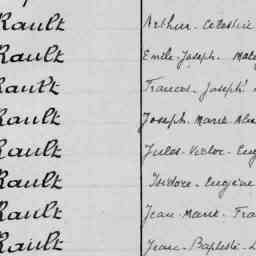 Rault Arthur. Célestin
Rault Emile. Joseph.
Rault Francois. Joseph
Rault Joseph. Marie
Rault Jules. Victor.
Rault Isidore. Eugène
Rault Jean. Marie.
Rault Jean. Baptiste.